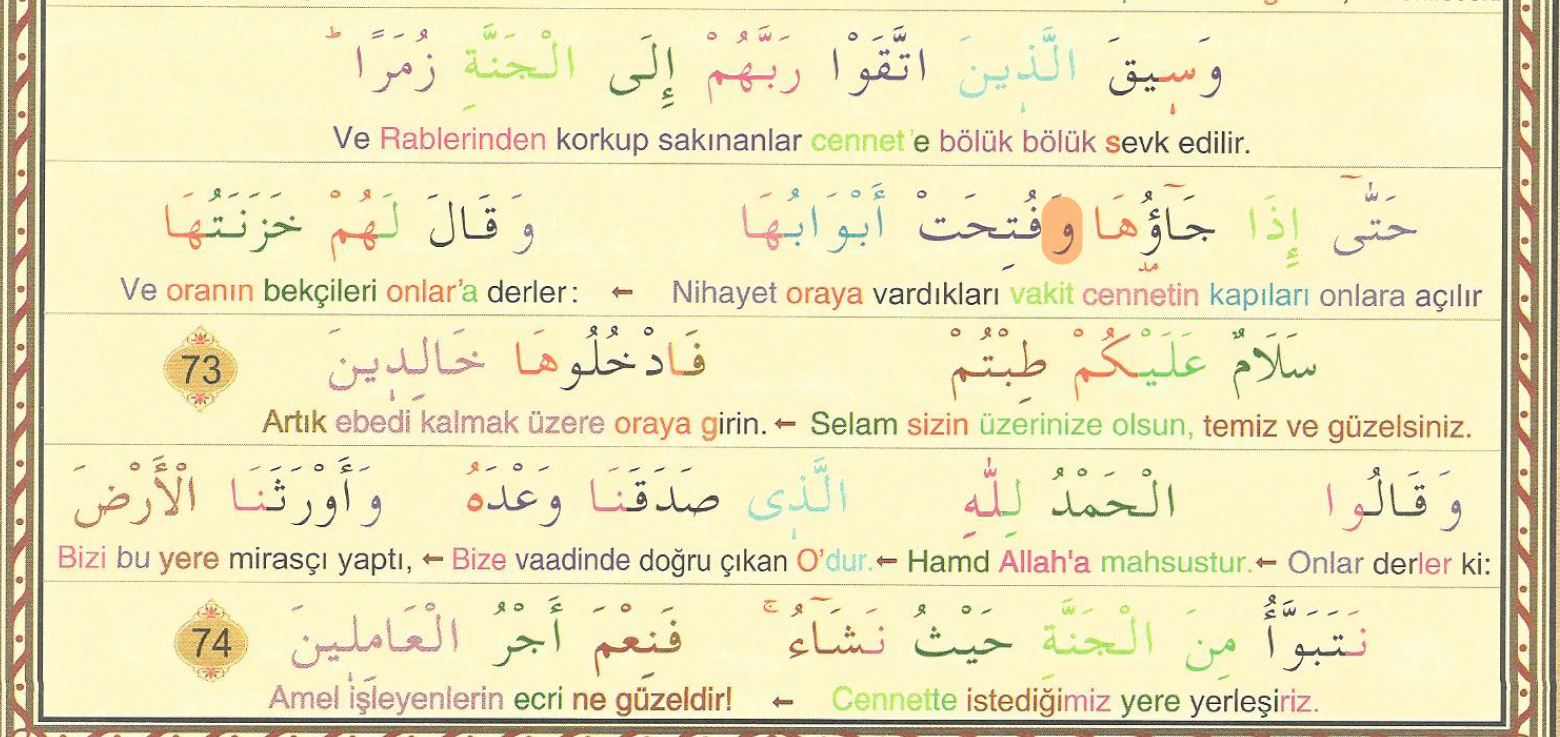 وَسِيقَ الَّذِينَ اتَّقَوْا رَبَّهُمْ إِلَى الْجَنَّةِ زُمَرًا ط
Ve Rablerinden korkup sakınanlar cennet'e bölük bölük sevk edilir.
حَتَّٰٓى إِذَا جَٓاؤُ۫هَا وَفُتِحَتْ أَبْوَابُهَا وَقَالَ لَهُمْ خَزَنَتُهَا
Nihayet oraya vardıkları vakit cennetin kapıları onlara açılır ← Ve oranın bekçileri onlar'a derler:
سَلَامٌ عَلَيْكُمْ طِبْتُمْ فَادْخُلُوهَا خَالِدِينَ 73
Selam sizin üzerinize olsun, temiz ve güzelsiniz. ← Artık ebedi kalmak üzere oraya girin.
وَقَالُوا الْحَمْدُ لِلّٰهِ الَّذِى صَدَقَنَا وَعْدَهُ وَأَوْرَثَنَا الْأَرْضَ
Onlar derler ki: ← Hamd Allah'a mahsustur. ← Bize vaadinde doğru çıkan O'dur. ← Bizi bu yere mirasçı yaptı,
نَتَبَوَّأُ مِنَ الْجَنَّةِ حَيْثُ نَشَٓاءُ ج فَنِعْمَ أَجْرُ الْعَامِلِينَ 74
Cennette istediğimiz yere yerleşiriz. ← Amel işleyenlerin ecri ne güzeldir!